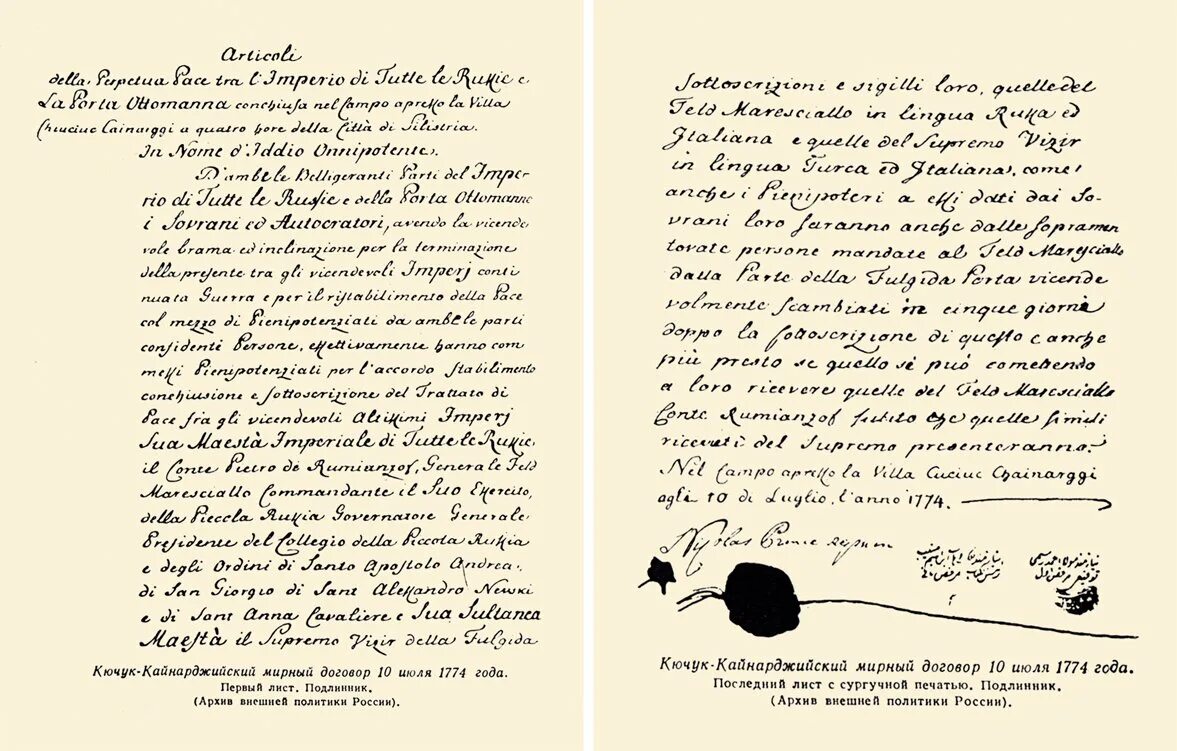 Articoli
della Perpetua Pace tra l'Imperio di Tutte le Russie e
La Porta Ottomanna conchiusa nel Campo apresso la Villa
Chiuciuc Cainarggi a quatro hore della Città di Silistria.
In Nome d'Iddio Onnipotente.
D'ambe le Belligeranti Parti del Impe-
rio di Tutte le Russie e della Porta Ottomanne
i Sovrani ed Autocratori, avendo la vicende
vole brama ed inclinazione per la terminazione
della presente tra gli vicendevoli Imperj conti
nuata Guerra e per il ristabilimento della Pace
col mezzo di Pienipotenziati da ambe le parti
confidenti Persone, effettivamente hanno com
messi Pienipotenziati per l'accordo stabilimento
conchiusione e sottoscrizione del Trattato di
Pace fra gli vicendevoli Altissimi Imperj
Sua Maestà Imperiale di Tutte le Russie
il Conte Pietro de Rumianzof, Generale Feld
Maresciallo Commandante il Suo Esercito,
della Piccola Russia Governatore Generale
Presidente del Collegio della Piccola Russia
e degli Ordini di Santo Apostolo Andrea,
di San Giorgio di Sant Alessandro Newski
e di Sant Anna Cavaliere e Sua Sultanea
Maestà il Supremo Vizir della Fulgida
Кючук-Кайнарджийский мирный договор 10 июля 1774 года.
Первый лист. Подлинник.
(Архив внешней политики России).
sottoscrizioni e sigilli loro, quelle del
Feld Maresciallo in lingua Russa ed
Italiana e quelle del Supremo Vizir
in lingua Turca ed Italiana, come
anche i Pienipoteri a essi dati dai So-
vrani loro saranno anche dalle sopramen
tovate persone mandate al Feld Maresciallo
dalla Parte della Fulgida Porta vicende
volmente scambiati in cinque giorni
doppo la sottoscrizione di questo e anche
più presto se quello sè può comettendo
a loro ricevere quelle del Feld Maresciallo
Conte Rumianzof subito che quelle simili
ricevuti del Supremo presenteranno.
Nel Campo apresso la Villa Cuciuc Chainarggi
agli 10 di Luglio, l'anno 1774.
Nycolas Prince
Кючук-Кайнарджийский мирный договор 10 июля 1774 года.
Последний лист с сургучной печатью. Подлинник.
(Архив внешней политики России).